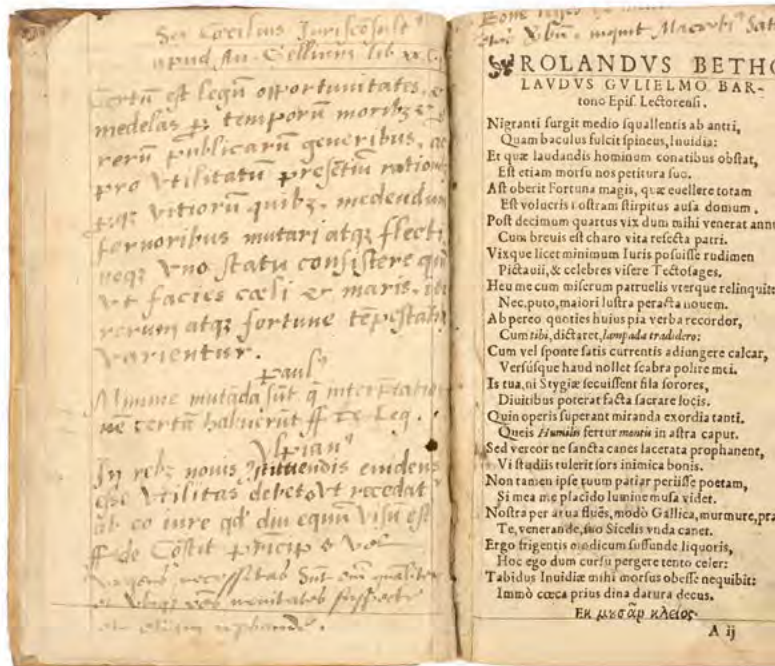 Sex Cæcilius Jurisconsult⁹
apud Au. Gellium lib xx. C.
Certū est legū opportunitates, &
medelas ꝓ temporum moribꝫ &
rerū publicarū generibus, ac
pro vtilitatū presētiū rationibꝫ
vitiorū quibꝫ medendum
feruoribus mutari atqꝫ flecti
neqꝫ vno statu consistere quī
vt facies cœli & maris, ita
rerum atqꝫ fortune tēpestatibꝫ
varientur.
Paul⁹
Minime mutāda sūt q̄ interp̄tationē
certā habuerūt ff De Leg.
Vlpian⁹
In rebꝫ nouis ꝯstituendis euidens
esse vtilitas debet, vt recedat
ab eo iure qd diu equū visū est
ff de Cōstit princip
vrgens necessitas
Macrobi⁹ Sat
ROLANDVS BETHO
LAVDVS GVLIELMO BAR-
tono Epis. Lectorensi.
Nigranti surgit medio squallentis ab antri,
Quam baculus fulcit spineus, Inuidia:
Et quæ laudandis hominum conatibus obstat,
Est etiam morsu nos petitura suo.
Ast oberit Fortuna magis, quæ euellere totam
Est volucris nostram stirpitus ausa domum.
Post decimum quartus vix dum mihi venerat annu
Cum breuis est charo vita resecta patri.
Vixque licet minimum Iuris posuisse rudimen
Pictauii, & celebres visere Tectosages.
Heu me cum miserum patruelis vterque relinquit
Nec, puto, maiori lustra peracta nouem.
Ab pereo quoties huius pia verba recordor,
Cum tibi, dictaret, lampada tradidero:
Cum vel sponte satis currentis adiungere calcar,
Versúsque haud nollet scabra polire mei.
Is tua, ni Stygiæ secuissent fila sorores,
Diuitibus poterat facta sacrare iocis.
Quin operis superant miranda exordia tanti.
Queis Humilis fertur montis in astra caput.
Sed vereor ne sancta canes lacerata prophanent,
Vi studiis tulerit sors inimica bonis.
Non tamen ipse tuum patiar periisse poetam,
Si mea me placido lumine musa videt.
Nostra per arua fluēs, modò Gallica, murmure, pra
Te, venerande, suo Sicelis vnda canet.
Ergo frigentis modicum suffunde liquoris,
Hoc ego dum cursu pergere tento celer:
Tabidus Inuidiæ mihi morsus obesse nequibit:
Immò cœca prius dina datura decus.
Εκ μυσᾶρ κλείος.
A ij